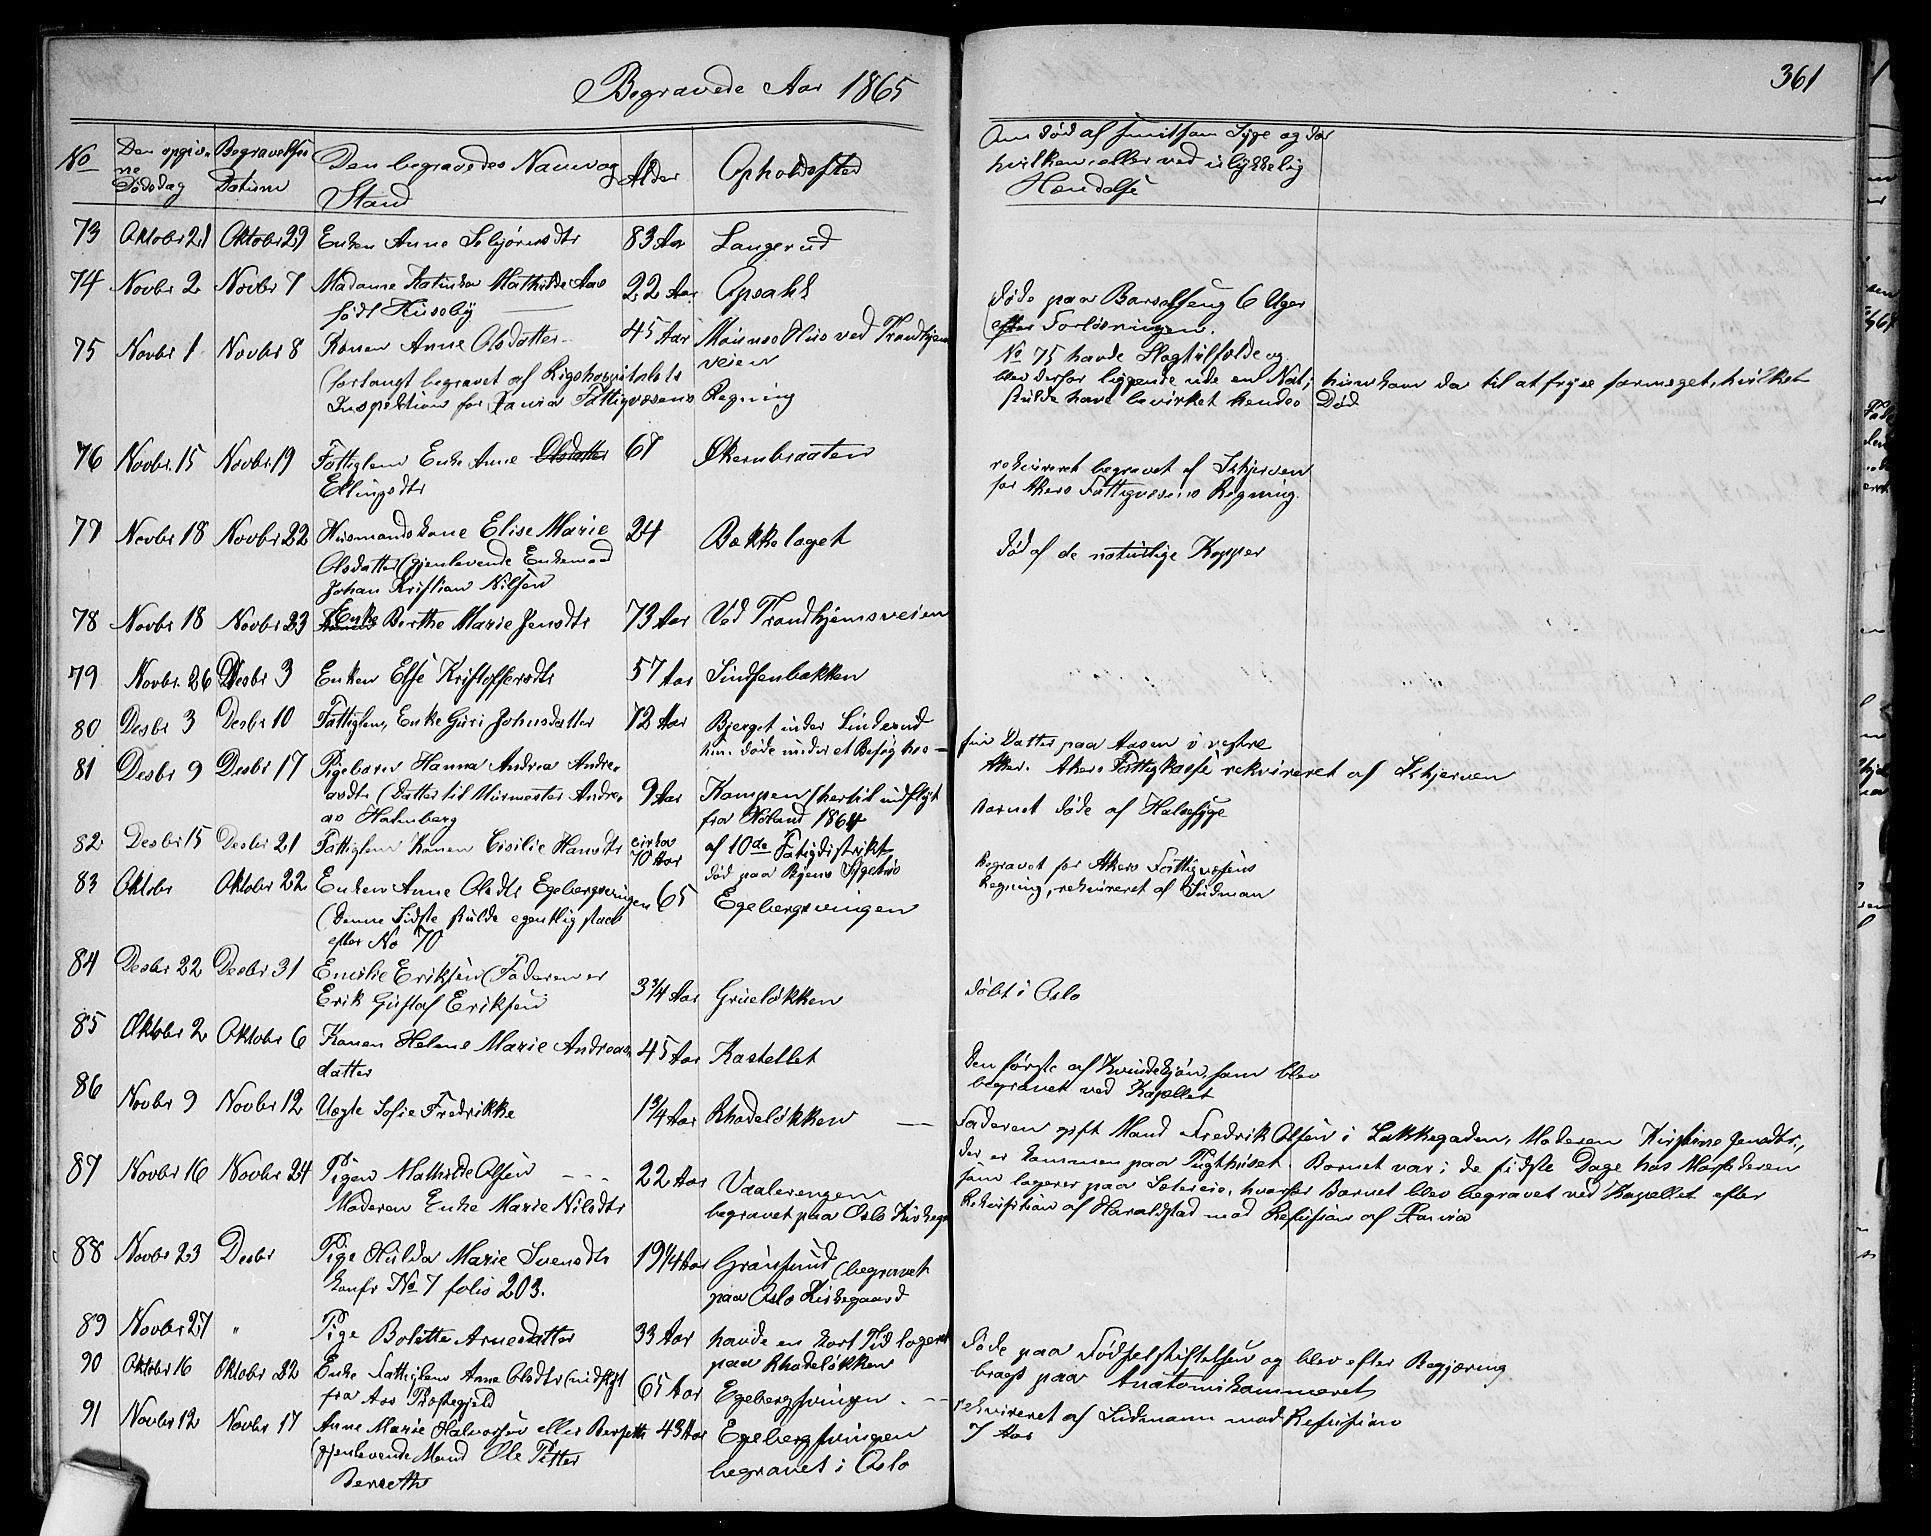 Begravede Aar 1865
361
No
Den opgivne Dødsdag
Begravelses Datum
Den begravedes Navn og Stand
Alder
Opholdssted
Om død af smitsom Syge og da hvilken, eller ved ulykkelig Hændelse
73 Oktober 21 Oktober 29 Enken Anne 83 Aar Langerud
74 Novbr 2 Novbr 7 Madame Katinka Mathilde Aas 22 Aar Opsahl
født Huseby
døde paa Barselseng 6 Uger
efter Forløsningen.
75 Novbr 1 Novbr 8 Konen Anne Olsdatter 45 Aar Hus ved Trondhjems
veien
(forlangt begravet af Rigshospitalets
Inspektion for Fattigvæsens Regning
No 75 havde Slagtilfælde og
blev derfor liggende ude en Nat, hun kom da til at fryse formeget, hvilket
skulde have bevirket hendes Død
76 Novbr. 15 Novbr 19 Fattiglem Enke Anne Olsdatter 67 Økernbraaten
Ellingsdtr
rekvireret begravet af Skjerven
for Akers Fattigvæsens Regning.
77 Novbr 18 Novbr 22 Husmandskone Elise Marie 24 Bækkelaget
Olsdatter (gjenlevende Enkemand
Johan Kristian Nilsen
død af de naturlige Kopper
78 Novbr 18 Novbr 23 Enke Berthe Marie Jensdtr 73 Aar Ved Trondhjemsveien
79 Novbr. 26 Desbr 3 Enken Else Kristoffersdtr 57 Aar Sinsenbakken
80 Desbr 3 Desbr 10 Fattiglem, Enke Guri Johnsdatter 72 Aar Bjerget under Linderud
hun døde under et Besøg hos sin Datter paa Aasen i vestre
Aker. Akers Fattigkasse rekvireret af Skjerven
81 Desbr 9 Desbr 17 Pigebarn Hanna Andrea Andre-
asdtr (Datter til Murmester Andre- 9 Aar Kampen (hertil indflyt
as Holmberg fra Høland 1864
Barnet døde af Halsesyge
82 Desbr 15 Desbr 21 Fattiglem Konen Cisilie Hansdtr cirka 70 Aar af 10de Fattigdistrikt
død paa Byens Sygehus
Begravet for Akers Fattigvæsens
Regning, rekvireret af Sudman
83 Oktober Oktober 22 Enken Anne Olsdtr Egebergsvingen 65 Egebergsvingen
(Denne Sidste skulde egentlig staa
efter No 70
84 Desbr 22 Desbr 31 Emilie Eriksen (Faderen er
Erik Gustaf Eriksen 3 3/4 Aar Grueløkken
døbt i Oslo
85 Oktober 2 Oktober 6 Konen Helene Marie Andreas- 45 Aar Kastellet
datter
den første af Kvindekjøn, som blev
begravet ved Kapellet
86 Novbr 9 Novbr 12 Uægte Sofie Fredrikke 1 3/4 Aar Rhodeløkken
Faderen gift Mand Fredrik Olsen i Lakkegaden, Moderen Kirstine Jensdtr,
der er kommen paa Tugthuset. Barnet var i de sidste Dage hos Morfaderen
som logerer paa, hvorfor Barnet blev begravet ved Kapellet efter
Rekvisition af Haraldstad mod Refusion af
87 Novbr 16 Novbr 24 Pigen Mathilde Olsen 22 Aar Vaalerengen
Moderen Enke Marie Nilsdtr begravet paa Oslo Kirkeg
88 Novbr 23 Desbr Pige Hulda Marie Svensdtr 19 1/4 Aar Grønsund (begravet
konfr No 7 folio 203. paa Oslo Kirkegaard
89 Novbr 27 " Pige Bolette Arnesdatter 33 Aar havde en kort Tid logeret
paa Rhodeløkken
døde paa Fødselsstiftelsen og blev efter Begjæring
bragt paa Anatomikammeret
90 Oktober 16 Oktober 22 Enke Fattiglem Anne Olsdtr (indflyt 65 Aar Egebergsvingen
fra Aas Præstegjeld
rekvireret af Sudmann med Refusion
7 Aar
91 Novbr 12 Novbr 17 Anne Marie Halvorsen eller Berseth 43 Aar Egebergsvingen
(gjenlevende Mand Ole Petter begravet i Oslo
Berseth